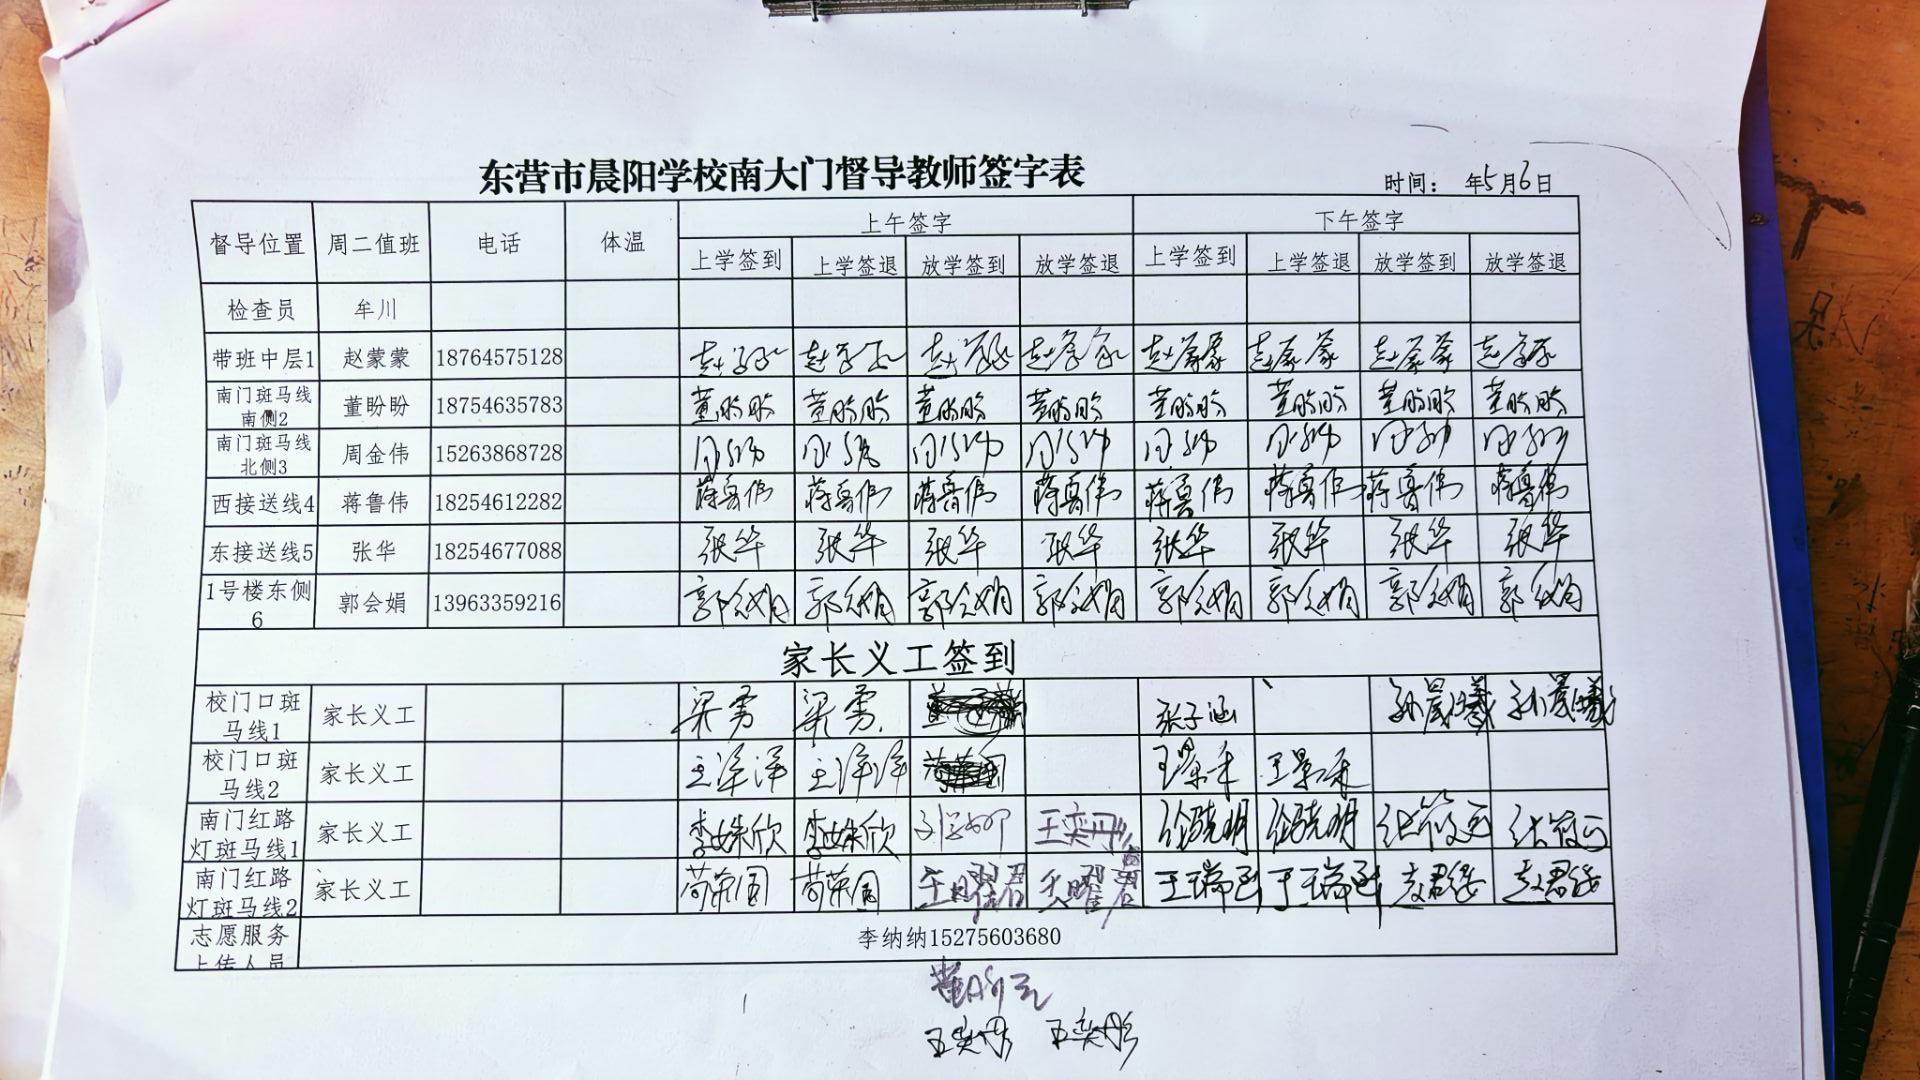 东营市晨阳学校南大门督导教师签字表
时间： 年5月6日
督导位置 周二值班 电话 体温 上午签字 下午签字
上学签到 上学签退 放学签到 放学签退 上学签到 上学签退 放学签到 放学签退
检查员 牟川
带班中层1 赵蒙蒙 18764575128 赵蒙蒙 赵蒙蒙 赵蒙蒙 赵蒙蒙 赵蒙蒙 赵蒙蒙 赵蒙蒙 赵蒙蒙
南门斑马线
南侧2 董盼盼 18754635783 董盼盼 董盼盼 董盼盼 董盼盼 董盼盼 董盼盼 董盼盼 董盼盼
南门斑马线
北侧3 周金伟 15263868728
西接送线4 蒋鲁伟 18254612282 蒋鲁伟 蒋鲁伟 蒋鲁伟 蒋鲁伟 蒋鲁伟 蒋鲁伟 蒋鲁伟 蒋鲁伟
东接送线5 张华 18254677088 张华 张华 张华 张华 张华 张华 张华 张华
1号楼东侧
6 郭会娟 13963359216 郭会娟 郭会娟 郭会娟 郭会娟 郭会娟 郭会娟 郭会娟 郭会娟
家长义工签到
校门口斑
马线1 家长义工 梁勇 梁勇 张子涵 孙晨曦 孙晨曦
校门口斑
马线2 家长义工 王洋洋 王洋洋 王景禾 王景禾
南门红路
灯斑马线1 家长义工 李姝欣 李姝欣 王奕丹 徐晓明 徐晓明
南门红路
灯斑马线2 家长义工 苟荣国 苟荣国 王瑞函 王瑞函 赵君
志愿服务
上传人员 李纳纳15275603680
王奕彤 王奕彤